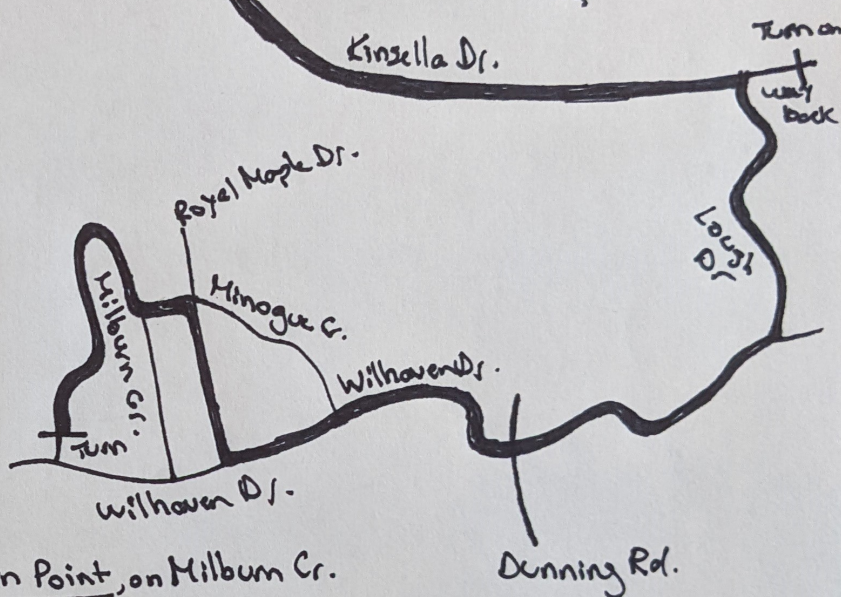 Kinsella Dr.
Turn on
way
back
Royal Maple Dr.
Lough
Dr
Milburn Cr.
Minogue Cr.
Wilhaven Dr.
Turn
Wilhaven Dr.
n Point, on Milburn Cr.
Dunning Rd.